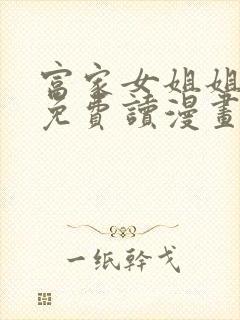 富家女姐姐
免費讀漫畫
一纸幹戈